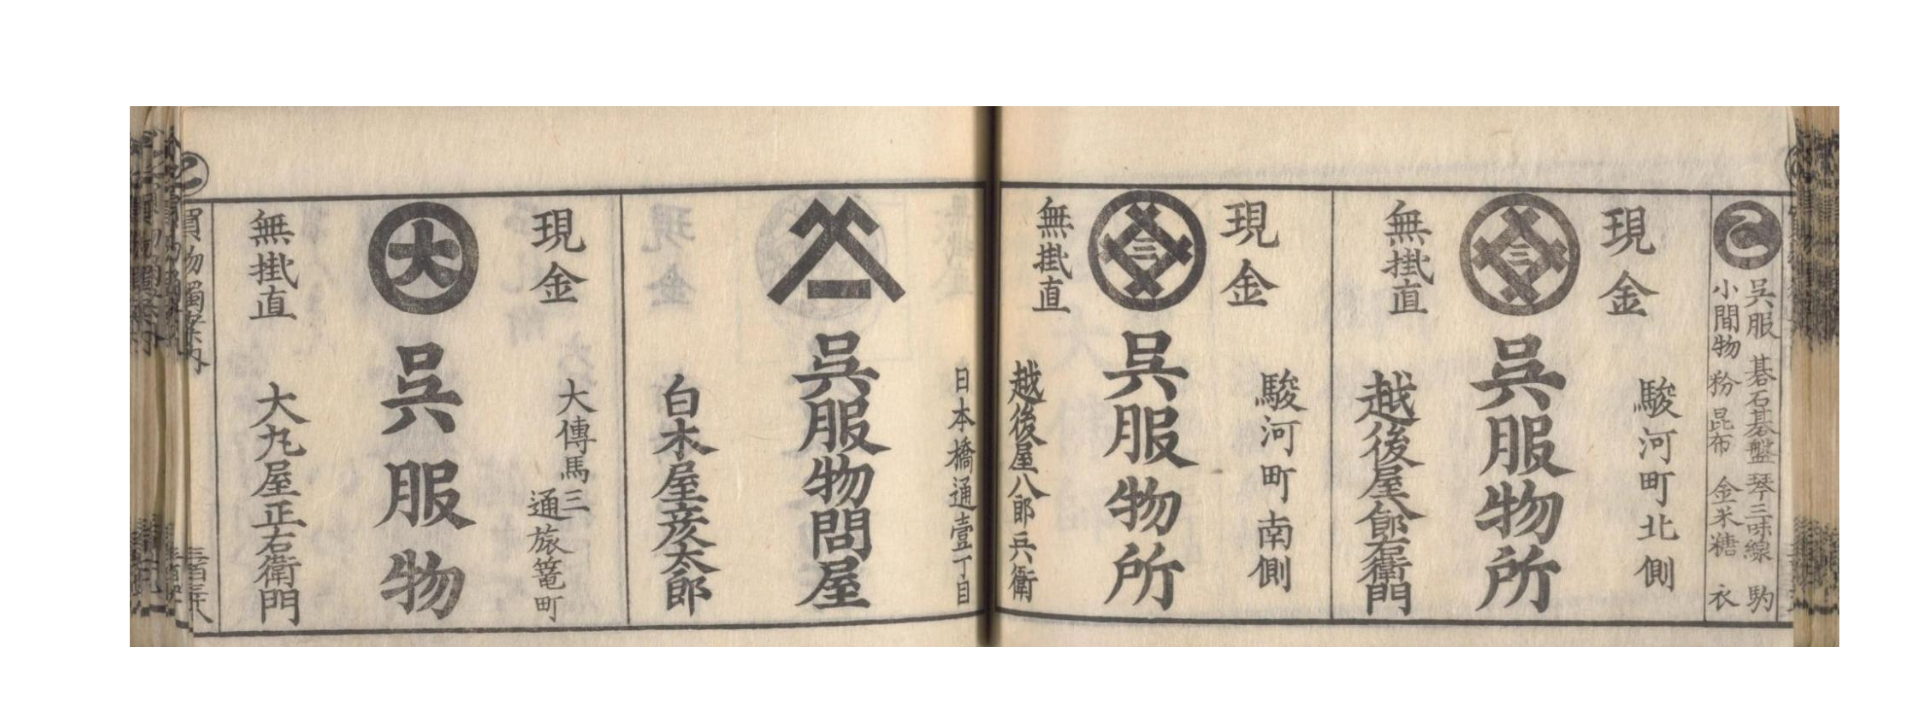 こ
呉服 碁石碁盤 琴三味線 駒
小間物 粉 昆布 金米糖 衣
現金
駿河町北側
三
呉服物所
無掛直
越後屋八郎右衛門
現金
駿河町南側
三
呉服物所
無掛直
越後屋八郎兵衛
日本橋通壹丁目
一
呉服物問屋
白木屋彦太郎
現金
大傳馬三
通旅篭町
大
呉服物
無掛直
大丸屋正右衛門
買物獨案内